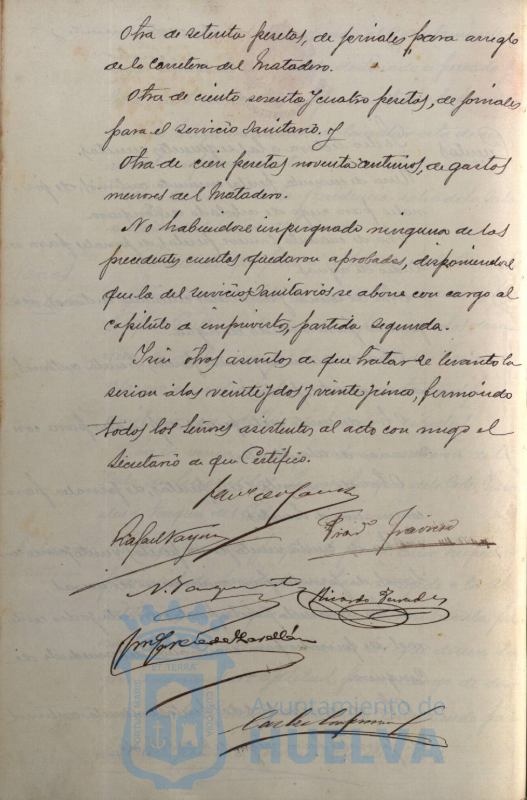 Otra de setenta pesetas, de jornales, para arreglo
de la carretera del Matadero.
Otra de ciento sesenta y cuatro pesetas, de jornales
para el servicio Sanitario. y
Otra de cien pesetas noventa centimos, de gastos
menores del Matadero.
No habiendose impugnado ninguna de las
precedentes cuentas quedaron aprobadas, disponiendose
que la del servicio Sanitarios se abone con cargo al
capitulo de imprevistos, partida segunda.
Y sin otros asuntos de que tratar se levantó la
sesion á las veinte y dos y veinte y cinco, firmando
todos los Señores asistentes al acto con migo el
Secretario de que Certifico.
Rafael
Ricardo
PORTUS MARIS ET TERRAE CUSTODIA
Ayuntamiento de
HUELVA